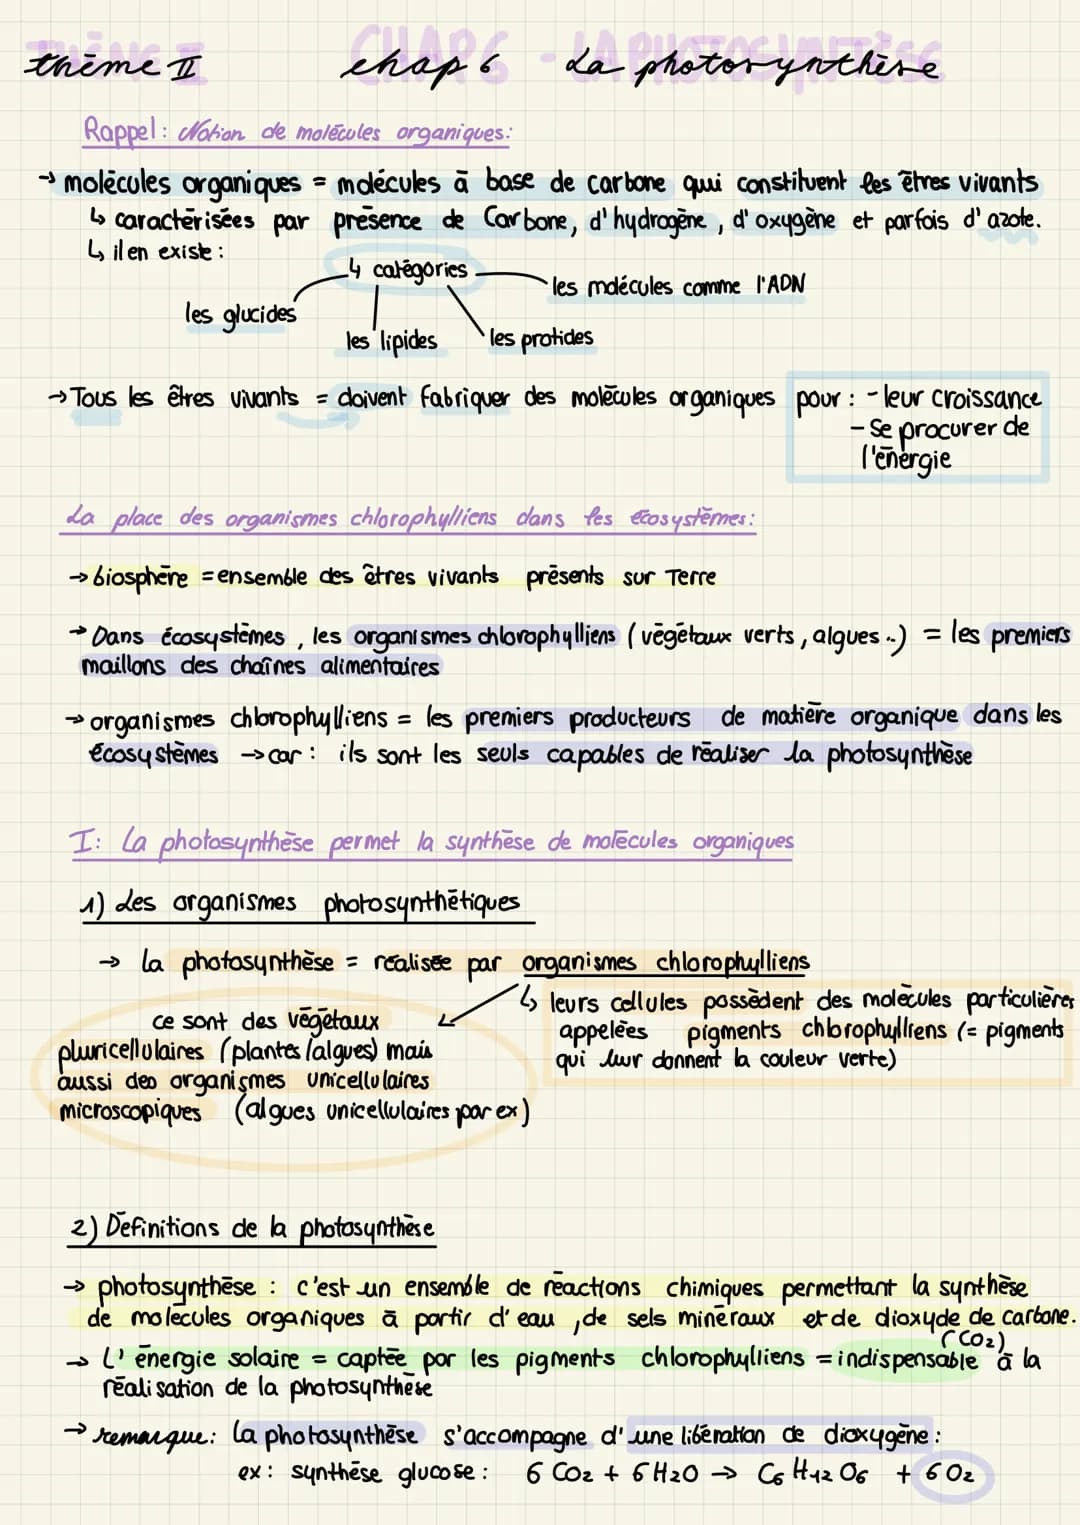 THÈME II CHAP 6 - LA PHOTOSYNTHÈSE
thème II chap 6 La photosynthèse
Rappel : Notion de molécules organiques :
→ molécules organiques = molécules à base de carbone qui constituent les êtres vivants
↳ caractérisées par présence de Carbone, d'hydrogène, d'oxygène et parfois d'azote.
↳ il en existe :
4 catégories
les molécules comme l'ADN
les glucides
les lipides
les protides
→ Tous les êtres vivants = doivent fabriquer des molécules organiques pour : - leur croissance
- se procurer de
l'énergie
La place des organismes chlorophylliens dans les écosystèmes :
→ biosphère = ensemble des êtres vivants présents sur Terre
→ Dans écosystèmes, les organismes chlorophylliens (végétaux verts, algues..) = les premiers
maillons des chaînes alimentaires
→ organismes chlorophylliens = les premiers producteurs de matière organique dans les
écosystèmes → car : ils sont les seuls capables de réaliser la photosynthèse
I : La photosynthèse permet la synthèse de molécules organiques
1) Les organismes photosynthétiques
→ la photosynthèse = réalisée par organismes chlorophylliens
↳ leurs cellules possèdent des molécules particulières
appelées pigments chlorophylliens (= pigments
qui leur donnent la couleur verte)
ce sont des végétaux
pluricellulaires (plantes/algues) mais
aussi des organismes unicellulaires
microscopiques (algues unicellulaires par ex)
2) Définitions de la photosynthèse
→ photosynthèse : c'est un ensemble de réactions chimiques permettant la synthèse
de molécules organiques à partir d'eau, de sels minéraux et de dioxyde de carbone.
(CO2)
→ L'énergie solaire = captée par les pigments chlorophylliens = indispensable à la
réalisation de la photosynthèse
→ remarque : la photosynthèse s'accompagne d'une libération de dioxygène :
ex : synthèse glucose : 6 CO2 + 6 H2O → C6 H12 O6 + 6 O2